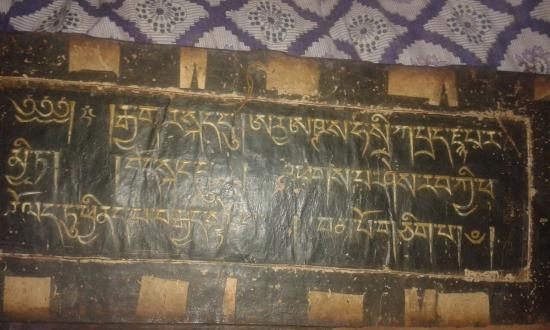 ༄༅༅། །རྒྱ་གར་སྐད་དུ། ཨཱརྱ་ཨཥྚ་ས་ཧ་སྲི་ཀཱ་པྲཛྙཱ་པཱ་ར
མི་ཏཱ། བོད་སྐད་དུ། འཕགས་པ་ཤེས་རབ་ཀྱི་ཕ
རོལ་ཏུ་ཕྱིན་པ་བརྒྱད་ བམ་པོ་གཅིག་པ།